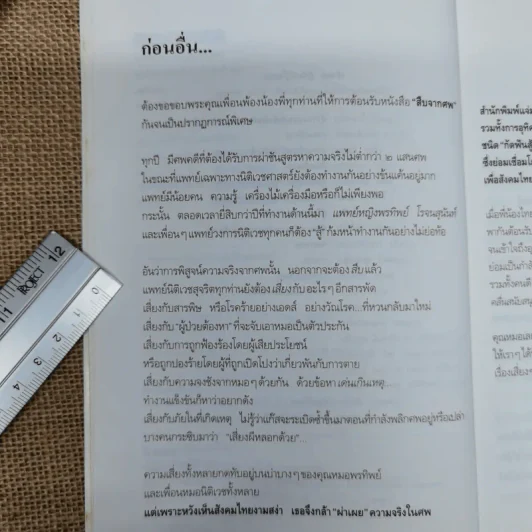 ก่อนอื่น...
ต้องขอขอบพระคุณเพื่อนพ้องน้องพี่ทุกท่านที่ให้การต้อนรับหนังสือ "สืบจากศพ"
กันจนเป็นปรากฏการณ์พิเศษ
ทุกปี มีศพคดีที่ต้องได้รับการผ่าชันสูตรหาความจริงไม่ต่ำกว่า ๒ แสนศพ
ในขณะที่แพทย์เฉพาะทางนิติเวชศาสตร์ยังต้องทำงานกันอย่างขันแค้นอยู่มาก
แพทย์มีน้อยคน ความรู้ เครื่องไม้เครื่องมือหรือก็ไม่เพียงพอ
กระนั้น ตลอดเวลายี่สิบกว่าปีที่ทำงานด้านนี้มา แพทย์หญิงพรทิพย์ โรจนสุนันท์
และเพื่อนๆ แพทย์วงการนิติเวชทุกคนก็ต้อง "สู้" ก้มหน้าทำงานกันอย่างไม่ย่อท้อ
อันว่าการพิสูจน์ความจริงจากศพนั้น นอกจากจะต้อง สืบ แล้ว
แพทย์นิติเวชสุจริตทุกท่านยังต้อง เสี่ยง กับอะไรๆ อีกสารพัด
เสี่ยงกับสารพิษ หรือโรคร้ายอย่างเอดส์ อย่างวัณโรค...ที่หวนกลับมาใหม่
เสี่ยงกับ "ผู้ป่วยต้องหา" ที่จะจับเอาหมอเป็นตัวประกัน
เสี่ยงกับการถูกฟ้องร้องโดยผู้เสียประโยชน์
หรือถูกปองร้ายโดยผู้ที่ถูกเปิดโปงว่าเกี่ยวพันกับการตาย
เสี่ยงกับความจงชังจากหมอๆ ด้วยกัน ด้วยข้อหา เด่นเกินเหตุ
ทำงานแข็งขันก็หาว่าอยากดัง
เสี่ยงกับภัยในที่เกิดเหตุ ไม่รู้ว่าแก๊สจะระเบิดซ้ำขึ้นมาตอนที่กำลังพลิกศพอยู่หรือเปล่า
บางคนกระซิบมาว่า "เสี่ยงผีหลอกด้วย"...
ความเสี่ยงทั้งหลายกดทับอยู่บนบ่าบางๆ ของคุณหมอพรทิพย์
และเพื่อนหมอนิติเวชทั้งหลาย
แต่เพราะหวังเห็นสังคมไทยงามสง่า เธอจึงกล้า "ผ่าเผย" ความจริงในศพ
สำนักพิมพ์
รวมทั้งการอุทิศ
ชนิด "กัดฟันสู้
ซึ่งย่อมเชื่อมโ
เพื่อสังคมไทย
เมื่อพี่น้อง
พากันต้อนรับ
จนเข้าใจถึง
ย่อมเป็นกำ
รวมทั้งคนดี
คุณหมอ
ให้เราๆ ได้
เรื่องเสี่ยง
12
11
0
1
2
3
4
5